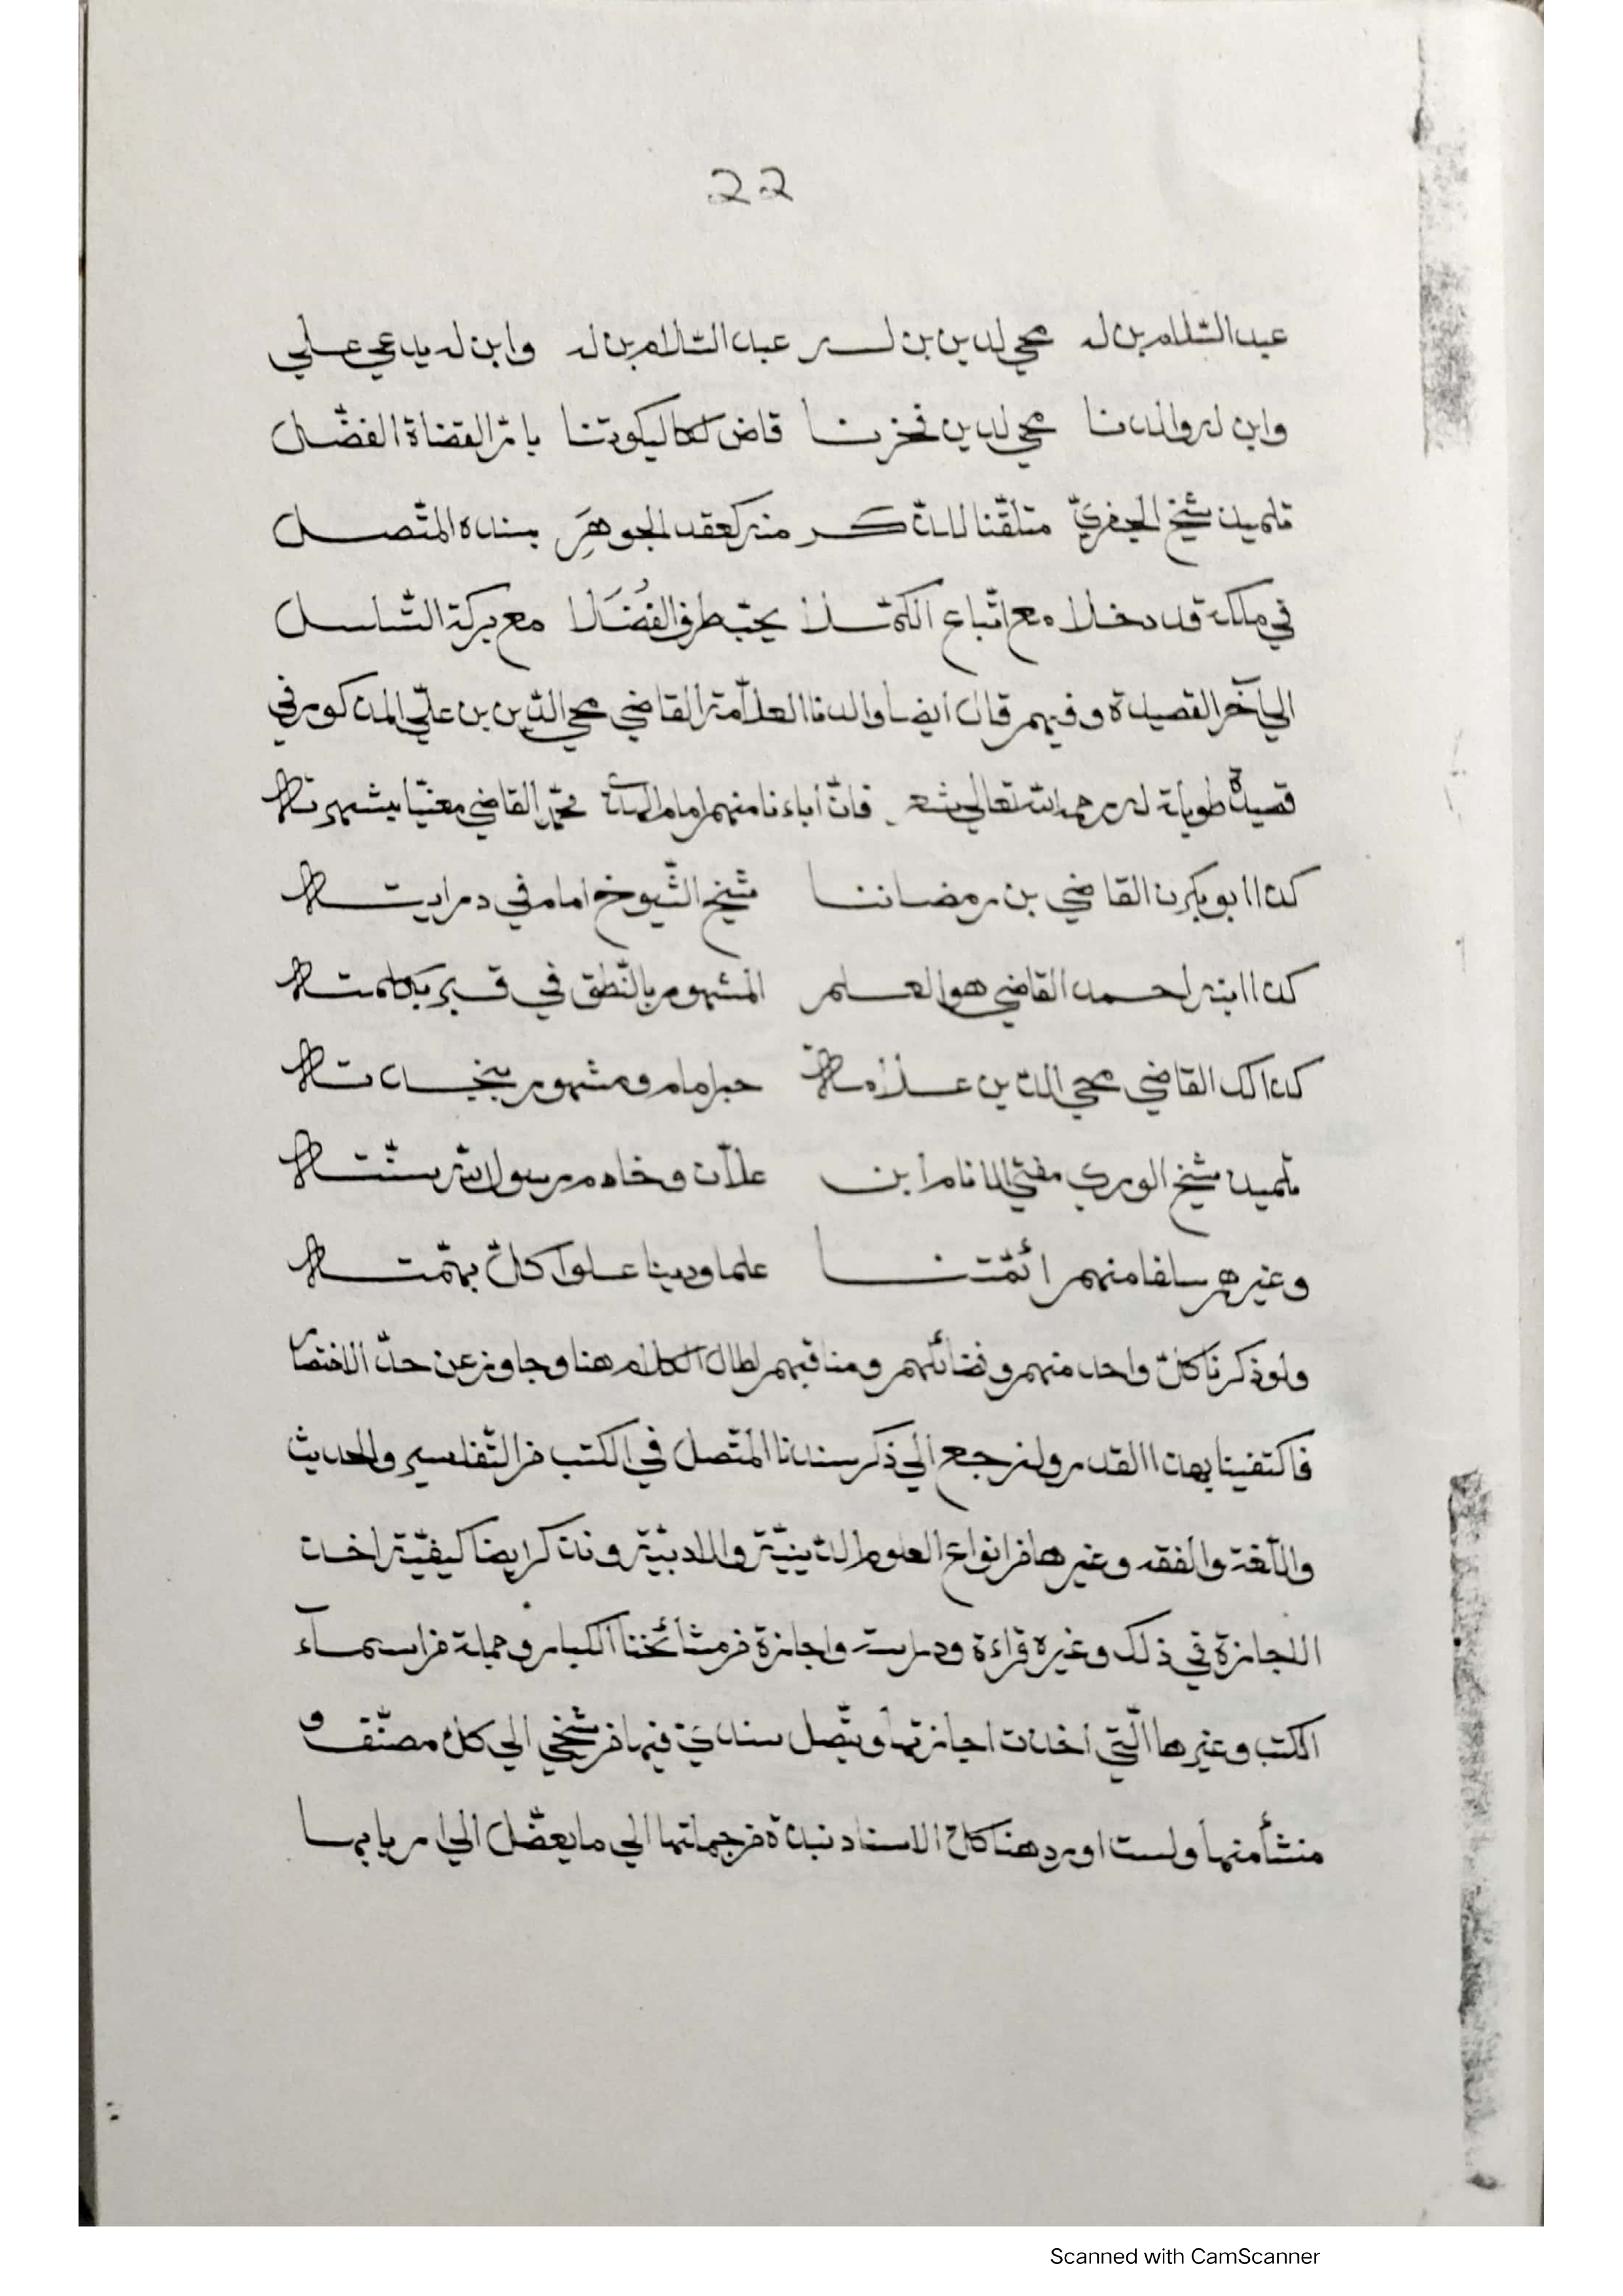 22
عبد السّلام بن له محي لدين بن لـــه عبد السّلام بن له وابن له يدعي علي
وابن له والدنا محي لدين فخرنا قاض لكاليكوتنا بامر القضاة الفضّل
تلميذ شيخ الجفريّ متلقّنا للذّكر منه كعقد الجوهَرِ بسنده المتّصل
في ملكه قد دخلا مع اتّباع الكمّلا يحبّ طرق الفُضَلا مع بركة السّلسل
الي آخر القصيدة وفيهم قال أيضا والدنا العلاّمة القاضي محي الدّين بن عليّ المذكور في
قصيدة طويلة له رحمه الله تعالي شعر فانّ أباءنا منهم امام محمّد القاضي مغنيّا بشهرته
كذا ابو بكرن القاضي بن رمضاننا شيخ الشّيوخ امام في درايته
كذا ابنه احمد القاضي هو العلم المشهور بالنّطق في قبر بكلمته
كذاك القاضي محي الدّين علاّمة حبر امام ومشهور بنجدته
تلميذ شيخ الوري مفتي الانام ابن علاّن وخادم رسول الله سنّته
وغيرهم سلفا منهم ائمّتنا علما ودينا علوا كلّ بهمّته
ولو ذكرنا كلّ واحد منهم وفضائلهم ومناقبهم لطال الكلام هنا وجاوز عن حدّ الاختصار
فاكتفينا بهذا القدر ولنرجع الي ذكر سندنا المتّصل في الكتب من التّفاسير والحديث
واللّغة والفقه وغيرها من انواع العلوم الدّينيّة والادبيّة ونذكر ايضا كيفيّة اخذ
الاجازة في ذلك وغيره قراءة ودراسة واجازة من مشائخنا الكبار وجملة من اسمآء
الكتب وغيرها الّتي اخذت اجازتها ويتّصل سنديّ فيها من شيخي الي كلّ مصنّف و
منشأ منها ولست اورد هنا كلّ الاسناد نبذة من جملتها الي ما يعضّل الي اربابها
Scanned with CamScanner